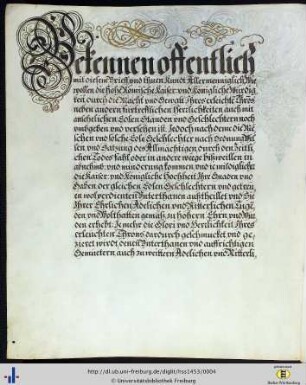 Bekennen offentlich
mit diesem Brieff und thuen Kundt Aller menniglich, Wie
wollen die hohe Römische Kaiser und Königliche Würdig
durch die Macht und Gewalt Ihres erleichte Throns
neben andern trefflichen Herrlichkeiten auch mit
ansehelichen Edlen Standen und Geschlechtern noch
umbgeben und versehen ist. Jedoch nach dem die Me
schen und solche Edle Geschlechter nach Ordnung
sen und Satzung des Allmächtigen durch den Zeitli
chen Todes fahl oder in andere wege bißweillen in
abnemb und minderung kommen und ie mildigliche
die Kaiser und Königliche Hochheit Ihre Gnaden und
Gaben der gleichen Edlen Geschlechtern und getrew
en wol verdienten Underthanen außtheillet und Sie
Ihrer Ehrlichen Adelichen und Ritterlichen
den und Wolthatten gemäß zu hohern Ehrn und Wür
den erhebt. Je mehr die Glori und Herrlichkeit Ihres
erleuchten Throns dardurch geschmucket und ge
zieret wirdt, denen Underthanen und auffrichtigen
Gemuetern auch zu weittern Adelichen und Ritterli,
http://dl.ub.uni-freiburg.de/diglit/hs1453/0004
© Universitätsbibliothek Freiburg